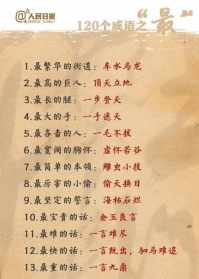 @人民日报
120个成语之“最”
1.最繁华的街道：车水马龙
2.最高的巨人：顶天立地
3.最长的腿：一步登天
4.最大的手：一手遮天
5.最吝啬的人：一毛不拔
6.最宽阔的胸怀：虚怀若谷
7.最简单的本领：雕虫小技
8.最厉害的小偷：偷天换日
9.最坚定的誓言：海枯石烂
10.最宝贵的话：金玉良言
11.最难的话：一言难尽
12.最快的话：一言既出，驷马难追
13.最重的话：一言九鼎